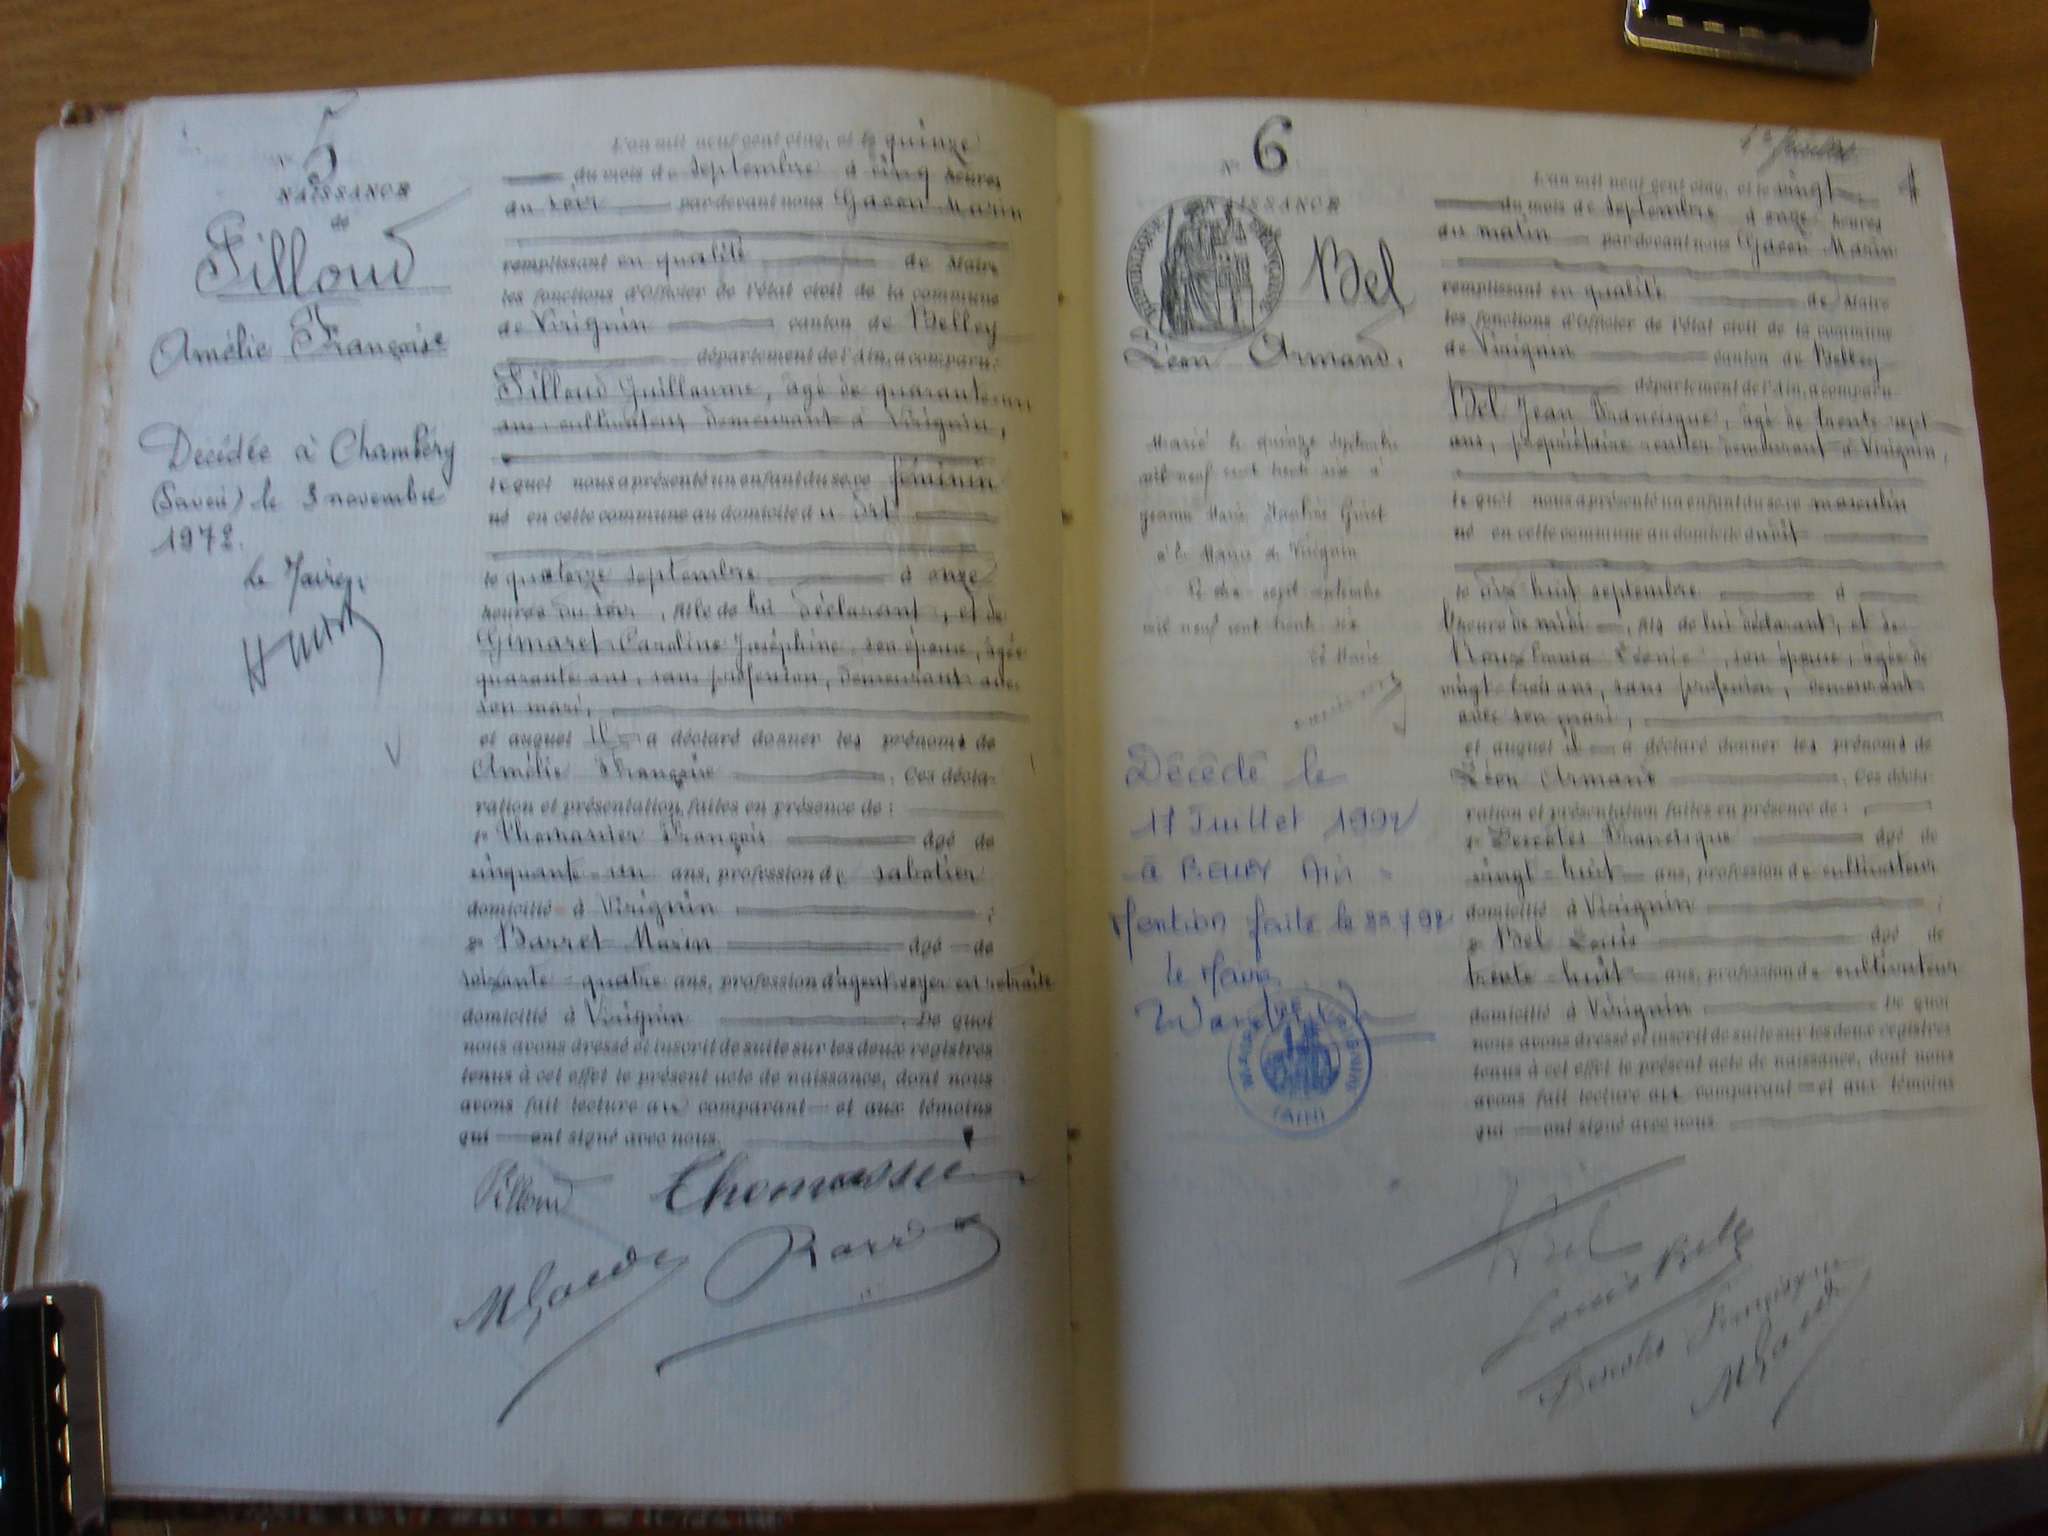 N° 5
NAISSANCE
de
Filloud
Amélie Françoise
Décédée à Chambéry
(Savoie) le 3 novembre
1972.
Le Maire,
L'an mil neuf cent cinq, et le quinze
du mois de septembre à cinq heures
du soir par devant nous Gacon Marin
remplissant en qualité de Maire
les fonctions d'officier de l'état civil de la commune
de Virignin canton de Belley
département de l'Ain, a comparu:
Filloud Guillaume, âgé de quarante-un
ans, cultivateur, demeurant à Virignin,
lequel nous a présenté un enfant du sexe féminin
né en cette commune au domicile du dit
le quatorze septembre à onze
heures du soir, fille de lui déclarant, et de
Gimaret Caroline Joséphine, son épouse, âgée
quarante ans, sans profession, demeurant avec
son mari,
et auquel il a déclaré donner les prénoms de
Amélie Françoise. Ces décla-
ration et présentation faites en présence de :
1° Thomassier François âgé de
cinquante-un ans, profession de sabotier
domicilié à Virignin ;
2° Barret Marin âgé de
soixante-quatre ans, profession d'agent voyer en retraite
domicilié à Virignin. De quoi
nous avons dressé et inscrit de suite sur les deux registres
tenus à cet effet le présent acte de naissance, dont nous
avons fait lecture au comparant et aux témoins
qui ont signé avec nous.
Filloud Thomassier
MGacon Barret
N° 6
NAISSANCE
Bel
Léon Armand.
Marié le quinze septembre
mil neuf cent trente six à
Jeanne Marie
à la Mairie de Virignin
Le dix-sept septembre
mil neuf cent trente six
Le Maire
Décédé le
17 Juillet 1992
à BELLEY Ain
Mention faite le
le Maire
(AIN)
L'an mil neuf cent cinq, et le vingt
du mois de septembre à onze heures
du matin par devant nous Gacon Marin
remplissant en qualité de Maire
les fonctions d'officier de l'état civil de la commune
de Virignin canton de Belley
département de l'Ain, a comparu
Bel Jean Francisque, âgé de trente-sept
ans, propriétaire rentier demeurant à Virignin,
lequel nous a présenté un enfant du sexe masculin
né en cette commune au domicile du dit
le dix huit septembre à
heure de midi, fils de lui déclarant, et de
Roux Emma Léonie, son épouse, âgée de
vingt-trois ans, sans profession, demeurant
avec son mari,
et auquel il a déclaré donner les prénoms de
Léon Armand. Ces décla-
ration et présentation faites en présence de :
1° Francisque âgé de
vingt-huit ans, profession de cultivateur
domicilié à Virignin ;
2° Bel Louis âgé de
trente-huit ans, profession de cultivateur
domicilié à Virignin De quoi
nous avons dressé et inscrit de suite sur les deux registres
tenus à cet effet le présent acte de naissance, dont nous
avons fait lecture au comparant et aux témoins
qui ont signé avec nous
Bel
Louis Bel
Francisque
MGacon